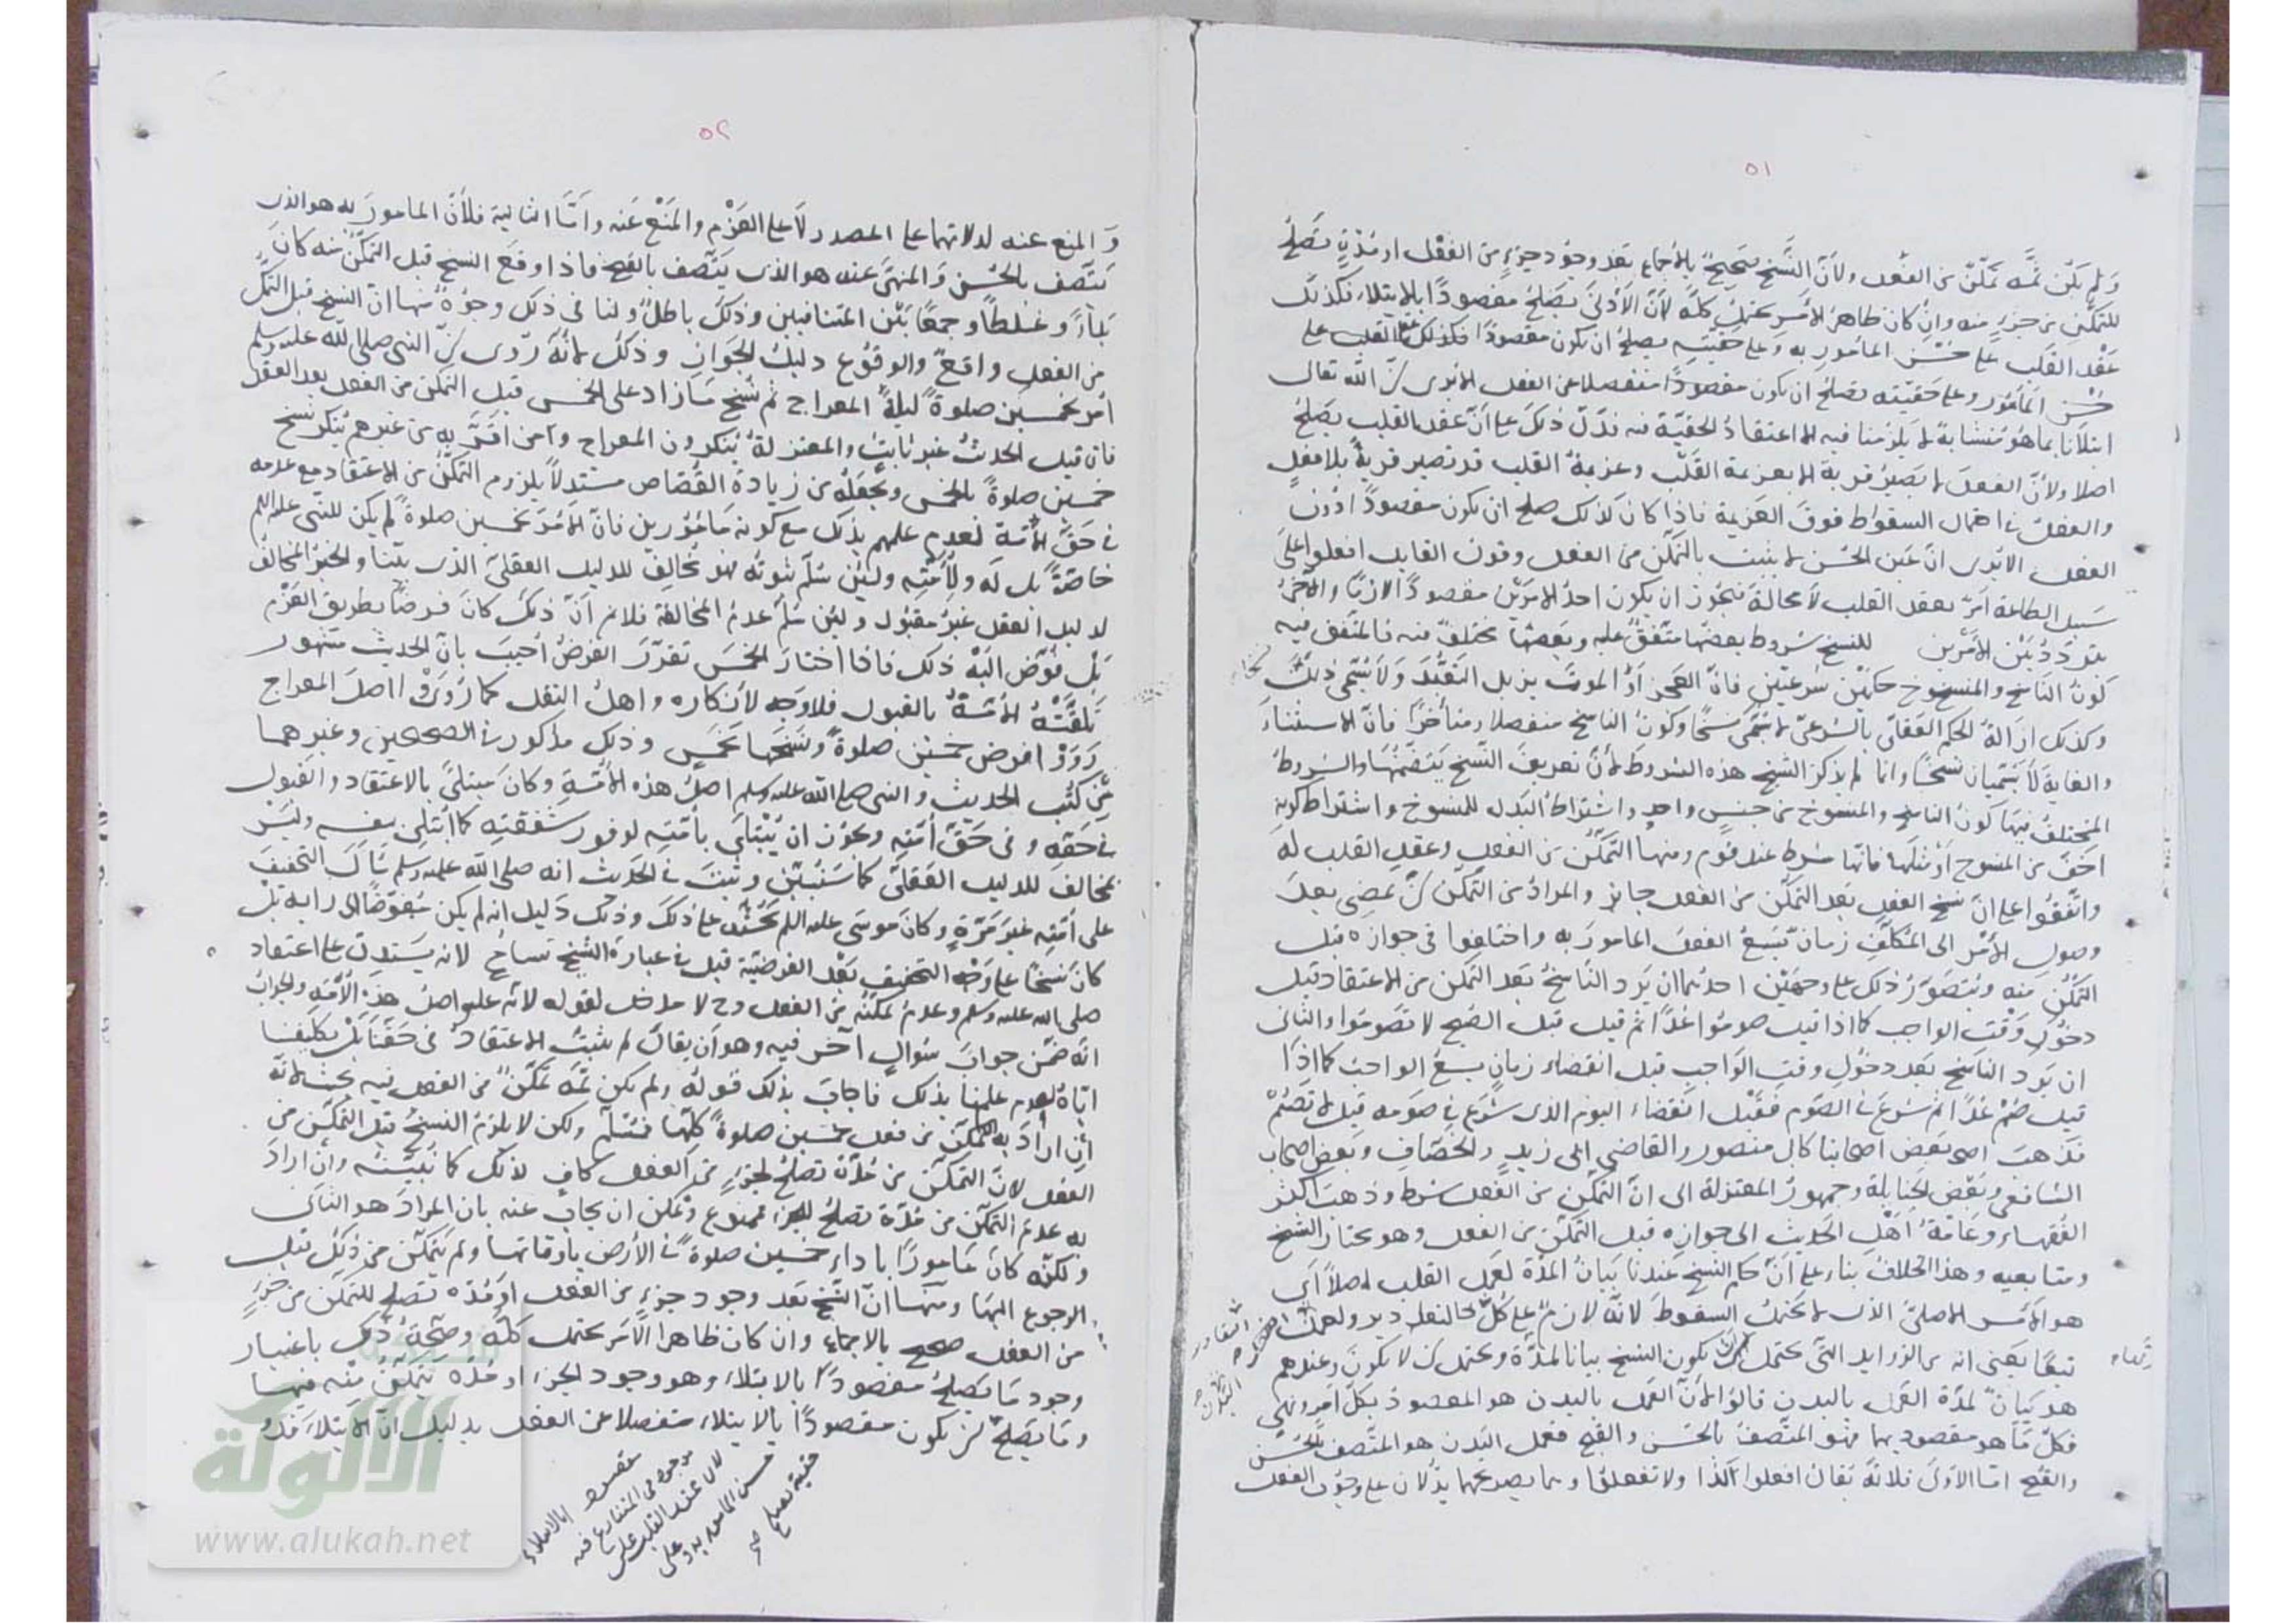 ٥١
ولم يكن ثمه تمكن من الفعل ولأن النسخ صحيح بالإجماع بعد وجود جزء من الفعل أو مدة تصلح
للتمكن من جزء منه وإن كان ظاهر الأمر يحتمل كله لأن الأدنى يصلح مقصودا بالابتلاء فكذلك
عقد القلب على حسن المأمور به وعلى حقيته يصلح أن يكون مقصودا فكذلك عقد القلب على
حسن المأمور وعلى حقيته يصلح أن يكون مقصودا منفصلا عن الفعل ألا ترى أن الله تعالى
ابتلانا بما هو متشابه لا يلزمنا فيه إلا اعتقاد الحقية فيه فدل ذلك على أن عقد القلب يصلح
أصلا ولأن الفعل لا يصير قربة إلا بعزيمة القلب وعزيمة القلب قد تصير قربة بلا فعل
والفعل في احتمال السقوط فوق العزيمة فإذا كان كذلك صلح أن يكون مقصودا دون
الفعل ألا ترى أن عين الحسن لا يثبت بالتمكن من الفعل وقول القايل افعلوا على
سبيل الطاعة أمر بعقد القلب لا محالة فيجوز أن يكون أحد الأمرين مقصودا لازما والآخر
يتردد بين الأمرين للنسخ شروط بعضها متفق عليه وبعضها مختلف فيه فالمتفق فيه
كون الناسخ والمنسوخ حكمين شرعيين فإن العجز أو الموت يزيل التعبد ولا يسمى ذلك
نسخا
وكذلك إزالة الحكم العقلي بالشرعي لا يسمى نسخا وكون الناسخ منفصلا ومتأخرا فإن الاستثناء
والغاية لا يسميان نسخا وإنما لم يذكر الشيخ هذه الشروط لأن تعريف النسخ يتضمنها والشروط
المختلف فيها كون الناسخ والمنسوخ من جنس واحد واشتراط البدل للمنسوخ واشتراط كونه
أخف من المنسوخ أو مثلها فإنها شرط عند قوم ومنها التمكن من الفعل وعقد القلب له
واتفقوا على أن نسخ الفعل بعد التمكن من الفعل جايز والمراد من التمكن أن يمضي بعد
وصول الأمر إلى المكلف زمان يسع الفعل المأمور به واختلفوا في جوازه قبل
التمكن منه ويتصور ذلك على وجهين أحدهما أن يرد الناسخ بعد التمكن من الاعتقاد قبل
دخول وقت الواجب كما إذا قيل صوموا غدا ثم قيل قبل الصبح لا تصوموا والثاني
أن يرد الناسخ بعد دخول وقت الواجب قبل انقضاء زمان يسع الواجب كما إذا
قيل صم غدا ثم شرع في الصوم فقبل انقضاء اليوم الذي شرع في صومه قيل لا تصم
فذهب بعض أصحابنا كأبي منصور والقاضي أبي زيد والخصاف وبعض أصحاب
الشافعي وبعض الحنابلة وجمهور المعتزلة إلى أن التمكن من الفعل شرط وذهب أكثر
الفقهاء وعامة أهل الحديث إلى جوازه قبل التمكن من الفعل وهو مختار الشيخ
ومتابعيه وهذا الخلاف بناء على أن حكم النسخ عندنا بيان المدة لعمل القلب أصلا أي
هو الأمر الأصلي الذي لا يحتمل السقوط لأنه لازم على كل حال
تبعا يعني أنه من الزوايد التي يحتمل أن يكون النسخ بيانا لمدة ويحتمل أن لا يكون وعندهم
هو بيان لمدة العمل بالبدن قالوا لأن العمل بالبدن هو المقصود بكل أمر ونهي
فكل ما هو مقصود بهما فهو المتصف بالحسن والقبح فعمل البدن هو المتصف بالحسن
والقبح أما الأولى فلأنه يقال افعلوا كذا ولا تفعلوا وهما بصريحهما يدلان على وجوب الفعل
٥٢
والمنع عنه لدلالتهما على المصدر لا على العزم والمنع عنه وأما الثانية فلأن المأمور به هو الذي
يتصف بالحسن والمنهي عنه هو الذي يتصف بالقبح فإذا وقع النسخ قبل التمكن منه كان
بداء وغلطا وجمعا بين المتنافيين وذلك باطل ولنا في ذلك وجوه منها أن النسخ قبل التمكن
من الفعل واقع والوقوع دليل الجواز وذلك لأنه روي أن النبي صلى الله عليه وسلم
أمر بخمسين صلوة ليلة المعراج ثم نسخ ما زاد على الخمس قبل التمكن من الفعل بعد العقل
فإن قيل الحديث غير ثابت والمعتزلة ينكرون المعراج ومن أقر به من غيرهم ينكر نسخ
خمسين صلوة بالخمس ويجعله من زيادة القصاص مستدلا بلزوم التمكن من الاعتقاد مع عدمه
في حق الأمة لعدم علمهم بذلك مع كونه مأمورين فإن الأمر بخمسين صلوة لم يكن للنبي عليه السلم
خاصة بل له ولأمته ولئن سلم ثبوته فهو مخالف للدليل العقلي الذي بينا والخبر المخالف
لدليل العقل غير مقبول ولئن سلم عدم المخالفة فلا نم أن ذلك كان فرضا بطريق العزم
بل فوض إليه ذلك فإذا اختار الخمس تقرر الفرض أجيب بأن الحديث مشهور
تلقته الأمة بالقبول فلا وجه لإنكاره وأهل النقل كما رووا أصل المعراج
رووا فرض خمسين صلوة ونسخها بخمس وذلك مذكور في الصحيحين وغيرهما
من كتب الحديث والنبي صلى الله عليه وسلم أصل هذه الأمة وكان مبتلى بالاعتقاد والقبول
في حقه وفي حق أمته ويجوز أن يبتلى بأمته لوفور شفقته كما ابتلي بنفسه وليس
بمخالف للدليل العقلي كما سنبين وثبت في الحديث أنه صلى الله عليه وسلم سأل التخفيف
على أمته غير مرة وكان موسى عليه السلم يحثه على ذلك وذلك دليل أنه لم يكن مفوضا إلى رأيه بل
كان نسخا على وجه التخفيف بعد الفرضية قيل في عبارة الشيخ تسامح لأنه يستدل على اعتقاد
صلى الله عليه وسلم وعدم تمكنه من الفعل وح لا مدخل لقوله لأنه عليه أصل هذه الأمة والجواب
أنه ضمن جواب سؤال آخر فيه وهو أن يقال لم يثبت الاعتقاد في حقنا بل تكليفنا
إياه لعدم علمنا بذلك فأجاب بذلك قوله ولم يكن ثمه تمكن من الفعل فيه بحث لأنه
إن أراد به التمكن من فعل خمسين صلوة كلها فمسلم ولكن لا يلزم النسخ قبل التمكن من
الفعل لأن التمكن من مدة تصلح لجزء من الفعل كاف لذلك كما نبينه وإن أراد
به عدم التمكن من مدة تصلح للجزء فممنوع ويمكن أن يجاب عنه بأن المراد هو الثاني
ولكنه كان مأمورا بأداء خمسين صلوة في الأرض بأوقاتها ولم يتمكن من ذلك قبل
الرجوع إليها ومنها أن النسخ بعد وجود جزء من الفعل أو مدة تصلح للتمكن من جزء
من الفعل صحيح بالإجماع وإن كان ظاهر الأمر يحتمل كله وصحة ذلك باعتبار
وجود ما يصلح مقصودا بالابتلاء وهو وجود الجزء أو مدة يتمكن منه فيها
وما يصلح أن يكون مقصودا بالابتلاء منفصلا عن الفعل بدليل أن الابتلاء
موجود في المتنازع فيه
لأن عقد القلب على
حسن المأمور به وعلى
حقيته يصلح
الألوكة
www.alukah.net